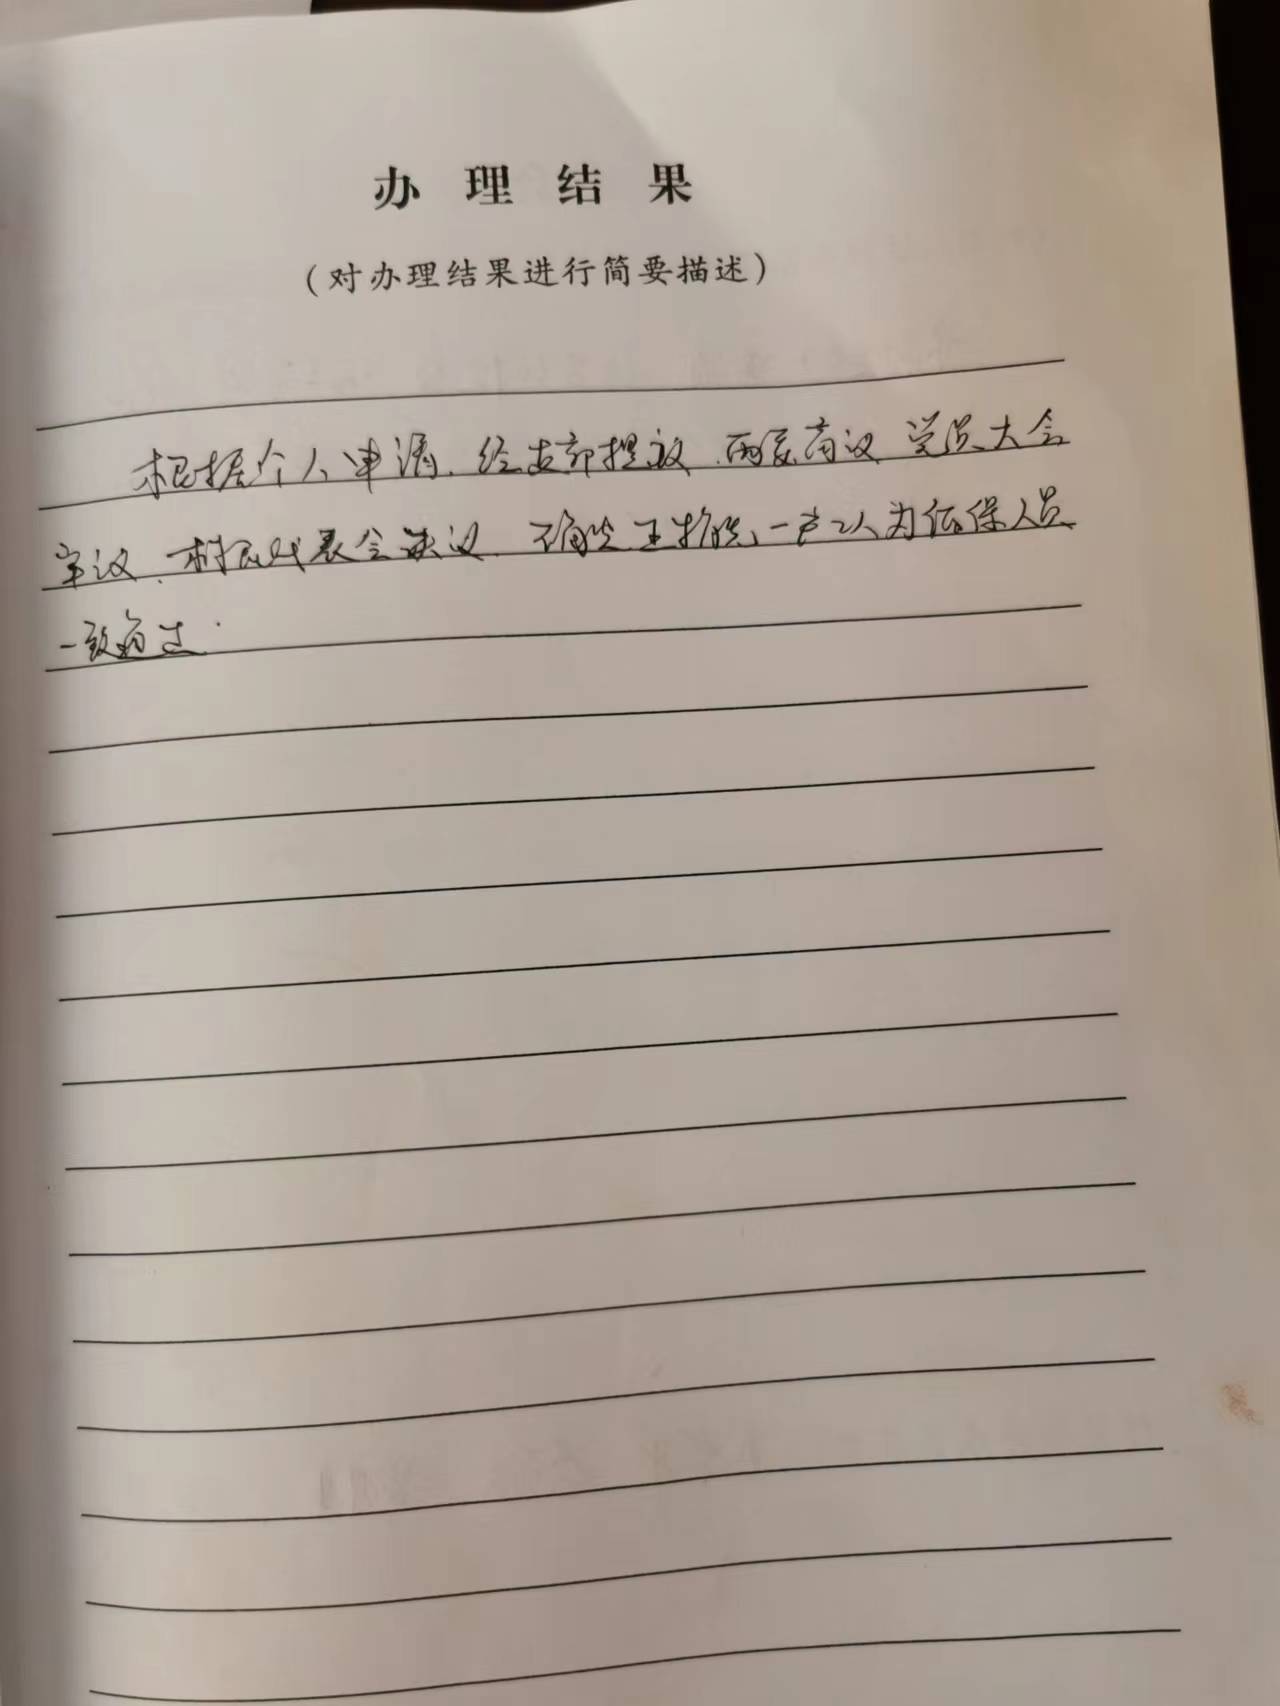 办理结果
（对办理结果进行简要描述）
根据个人申请、经支部提议、两委商议、党员大会
审议、村民代表会决议、确定王 一户2人为低保人员
一致通过.